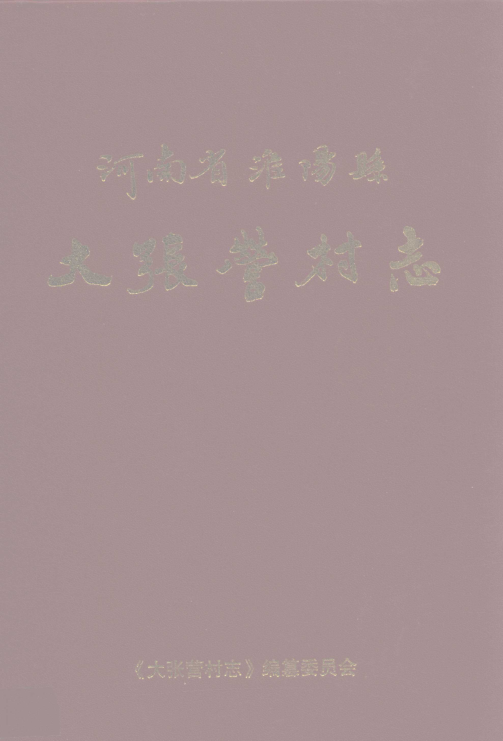 河南省淮陽縣
大張營村志
《大张营村志》编纂委员会